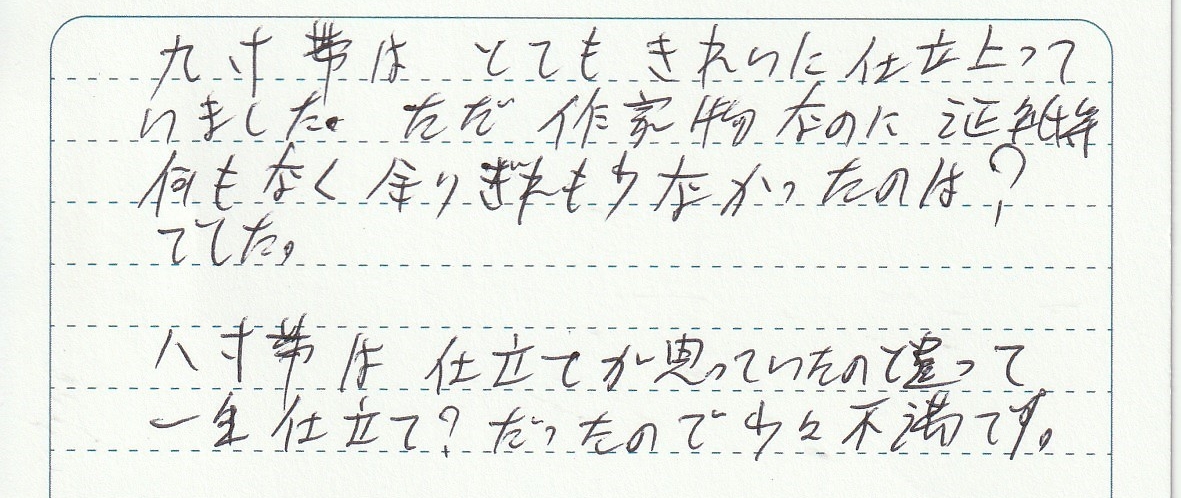 九寸帯は とても きれいに 仕立上って
いました。ただ 作家物なのに 証紙等
何もなく 余りぎれも少なかったのは?
でした。
八寸帯は 仕立てが思っていたのと違って
一重仕立て?だったので少々不満です。